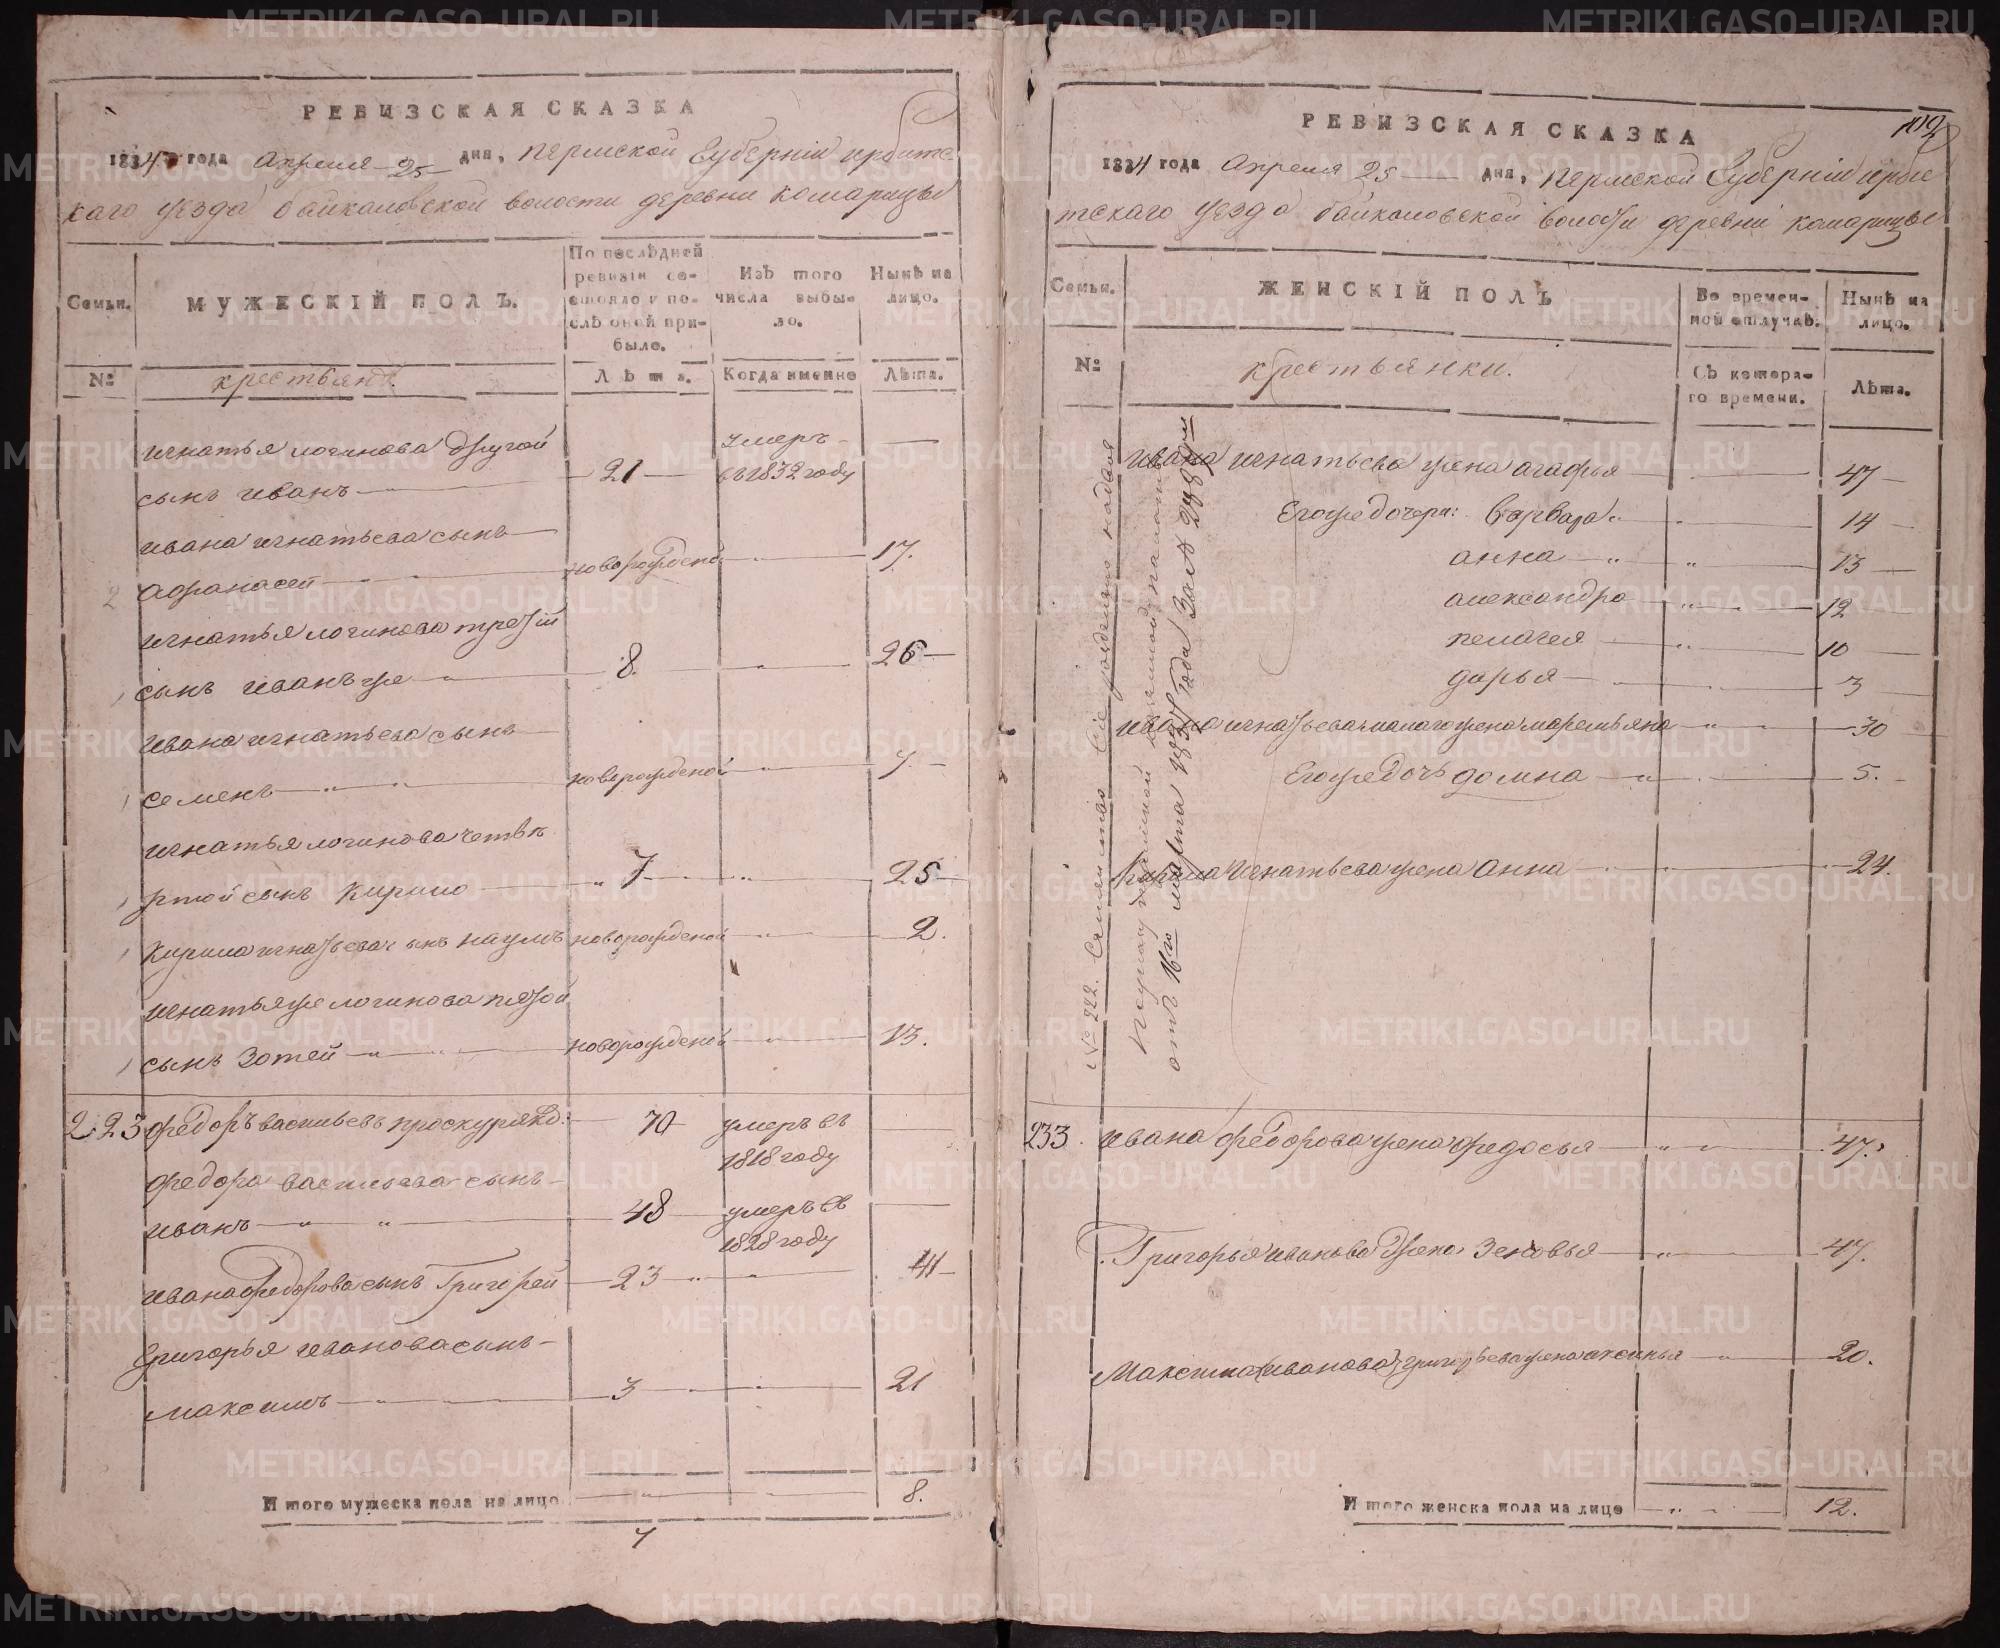 РЕВИЗСКАЯ СКАЗКА
1834 года апреля 25 дня, пермской Губерніи ирбитс
каго уезда байкаловской волости деревни комарицы
Семьи.
МУЖЕСКІЙ ПОЛЪ.
По послѣдней ревизіи состояло и послѣ оной прибыло.
Изъ того числа выбыло.
Нынѣ на лицо.
№
крестьянъ.
Лѣта.
Когда именно
Лѣта.
игнатья логинова другой
сынъ иванъ 21 умеръ в 1832 году
ивана игнатьева сынъ
афанасей новорожденой 17.
игнатья логинова третій
сынъ иванъ же 8. 26
ивана игнатьева сынъ
семенъ новорожденой 7.
игнатья логинова четве
ртой сынъ кирило 7 25
кирила игнатьева сынъ наумъ новорожденой 2.
игнатья же логинова пятой
сынъ зотей новорожденой 13.
223 федоръ васильевъ проскуряко: 70 умеръ въ 1818 году
федора васильева сынъ
иванъ 48 умеръ въ 1828 году
ивана федорова сынъ Григорей 23 41
григорья иванова сынъ
максимъ 3 21
Итого мужеска пола на лицо 8.
РЕВИЗСКАЯ СКАЗКА
1834 года апреля 25 дня, пермской Губерніи ирби
тскаго уезда байкаловской волости деревни комарицы
Семьи.
ЖЕНСКІЙ ПОЛЪ
Во временной отлучкѣ.
Нынѣ на лицо.
№
крестьянки.
Съ котораго времени.
Лѣта.
ивана игнатьева жена агафья 47
Егоже дочери: варвара 14
анна 13
александра 12
пелагея 10
дарья 3
ивана игнатьева малаго жена маремьяна 30
Егоже дочь домна 5.
кирила игнатьева жена анна 24.
№ 222. Семейство сіе
отъ 16го марта 1837 Года За №
233. ивана федорова жена федосья 47.
Григорья иванова жена зеновья 47.
Максима (иванова) григорьева жена аксинья 20.
Итого женска пола на лице 12.
METRIKI.GASO-URAL.RU